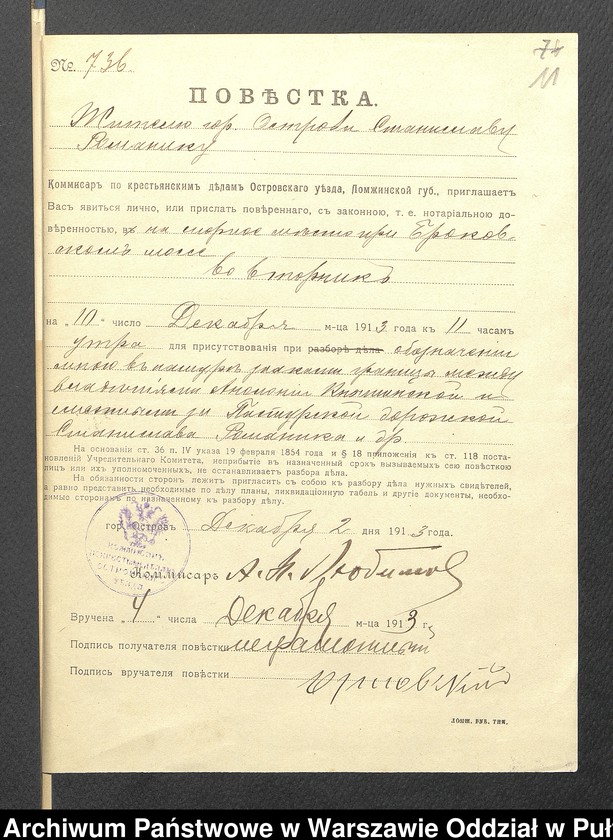 № 736.
76
11
ПОВѢСТКА.
Жителю гор. Острова Станиславу
Романику
Коммисаръ по крестьянскимъ дѣламъ Островскаго уѣзда, Ломжинской губ., приглашаетъ
Васъ явиться лично, или прислать повѣреннаго, съ законною, т. е. нотаріальною до-
вѣренностью, въ на спорное мѣсто при Броков-
скомъ
во вторникъ
на „10" число Декабря м-ца 1913 года къ 11 часамъ
утра для присутствованія при разборѣ дѣла обозначеніи
мною въ натурѣ границы между
владѣніями Антоніи и
смежными за дорожкой
Станислава Романика и др.
На основаніи ст. 36 п. IV указа 19 февраля 1864 года и § 18 приложенія къ ст. 118 поста-
новленій Учредительнаго Комитета, неприбытіе въ назначенный срокъ вызываемыхъ сею повѣсткою
лицъ или ихъ уполномоченныхъ, не останавливаетъ разбора дѣла.
На обязанности сторонъ лежитъ пригласить съ собою къ разбору дѣла нужныхъ свидѣтелей,
а равно представить необходимые по дѣлу планы, ликвидаціонную табель и другіе документы, необхо-
димые сторонамъ по назначенному къ разбору дѣлу.
гор. Островъ Декабря 2 дня 1913 года.
Коммисаръ А. Н. Любимов
КОММИСАРЪ
ПО КРЕСТЬЯНСКИМЪ ДѢЛАМЪ
ОСТРОВСКАГО
УѢЗДА
Вручена „4" числа Декабря м-ца 1913 г.
Подпись получателя повѣстки неграмотный
Подпись вручателя повѣстки
ЛОМЖ. ГУБ. ТИП.
Archiwum Państwowe w Warszawie Oddział w Puł